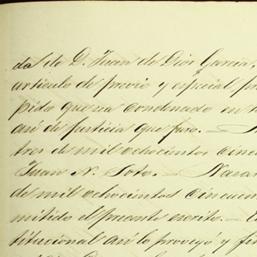 da de D. Juan de Dios Garcia,
articulo de previo y especial pro
pida que sea condenado en
asi de Justicia que juro.
tres de mil ochocientos cinc
Juan N. Soto.
de mil ochocientos cincuen
mitido el presente escrito.
titucional asi lo proveyo y fir